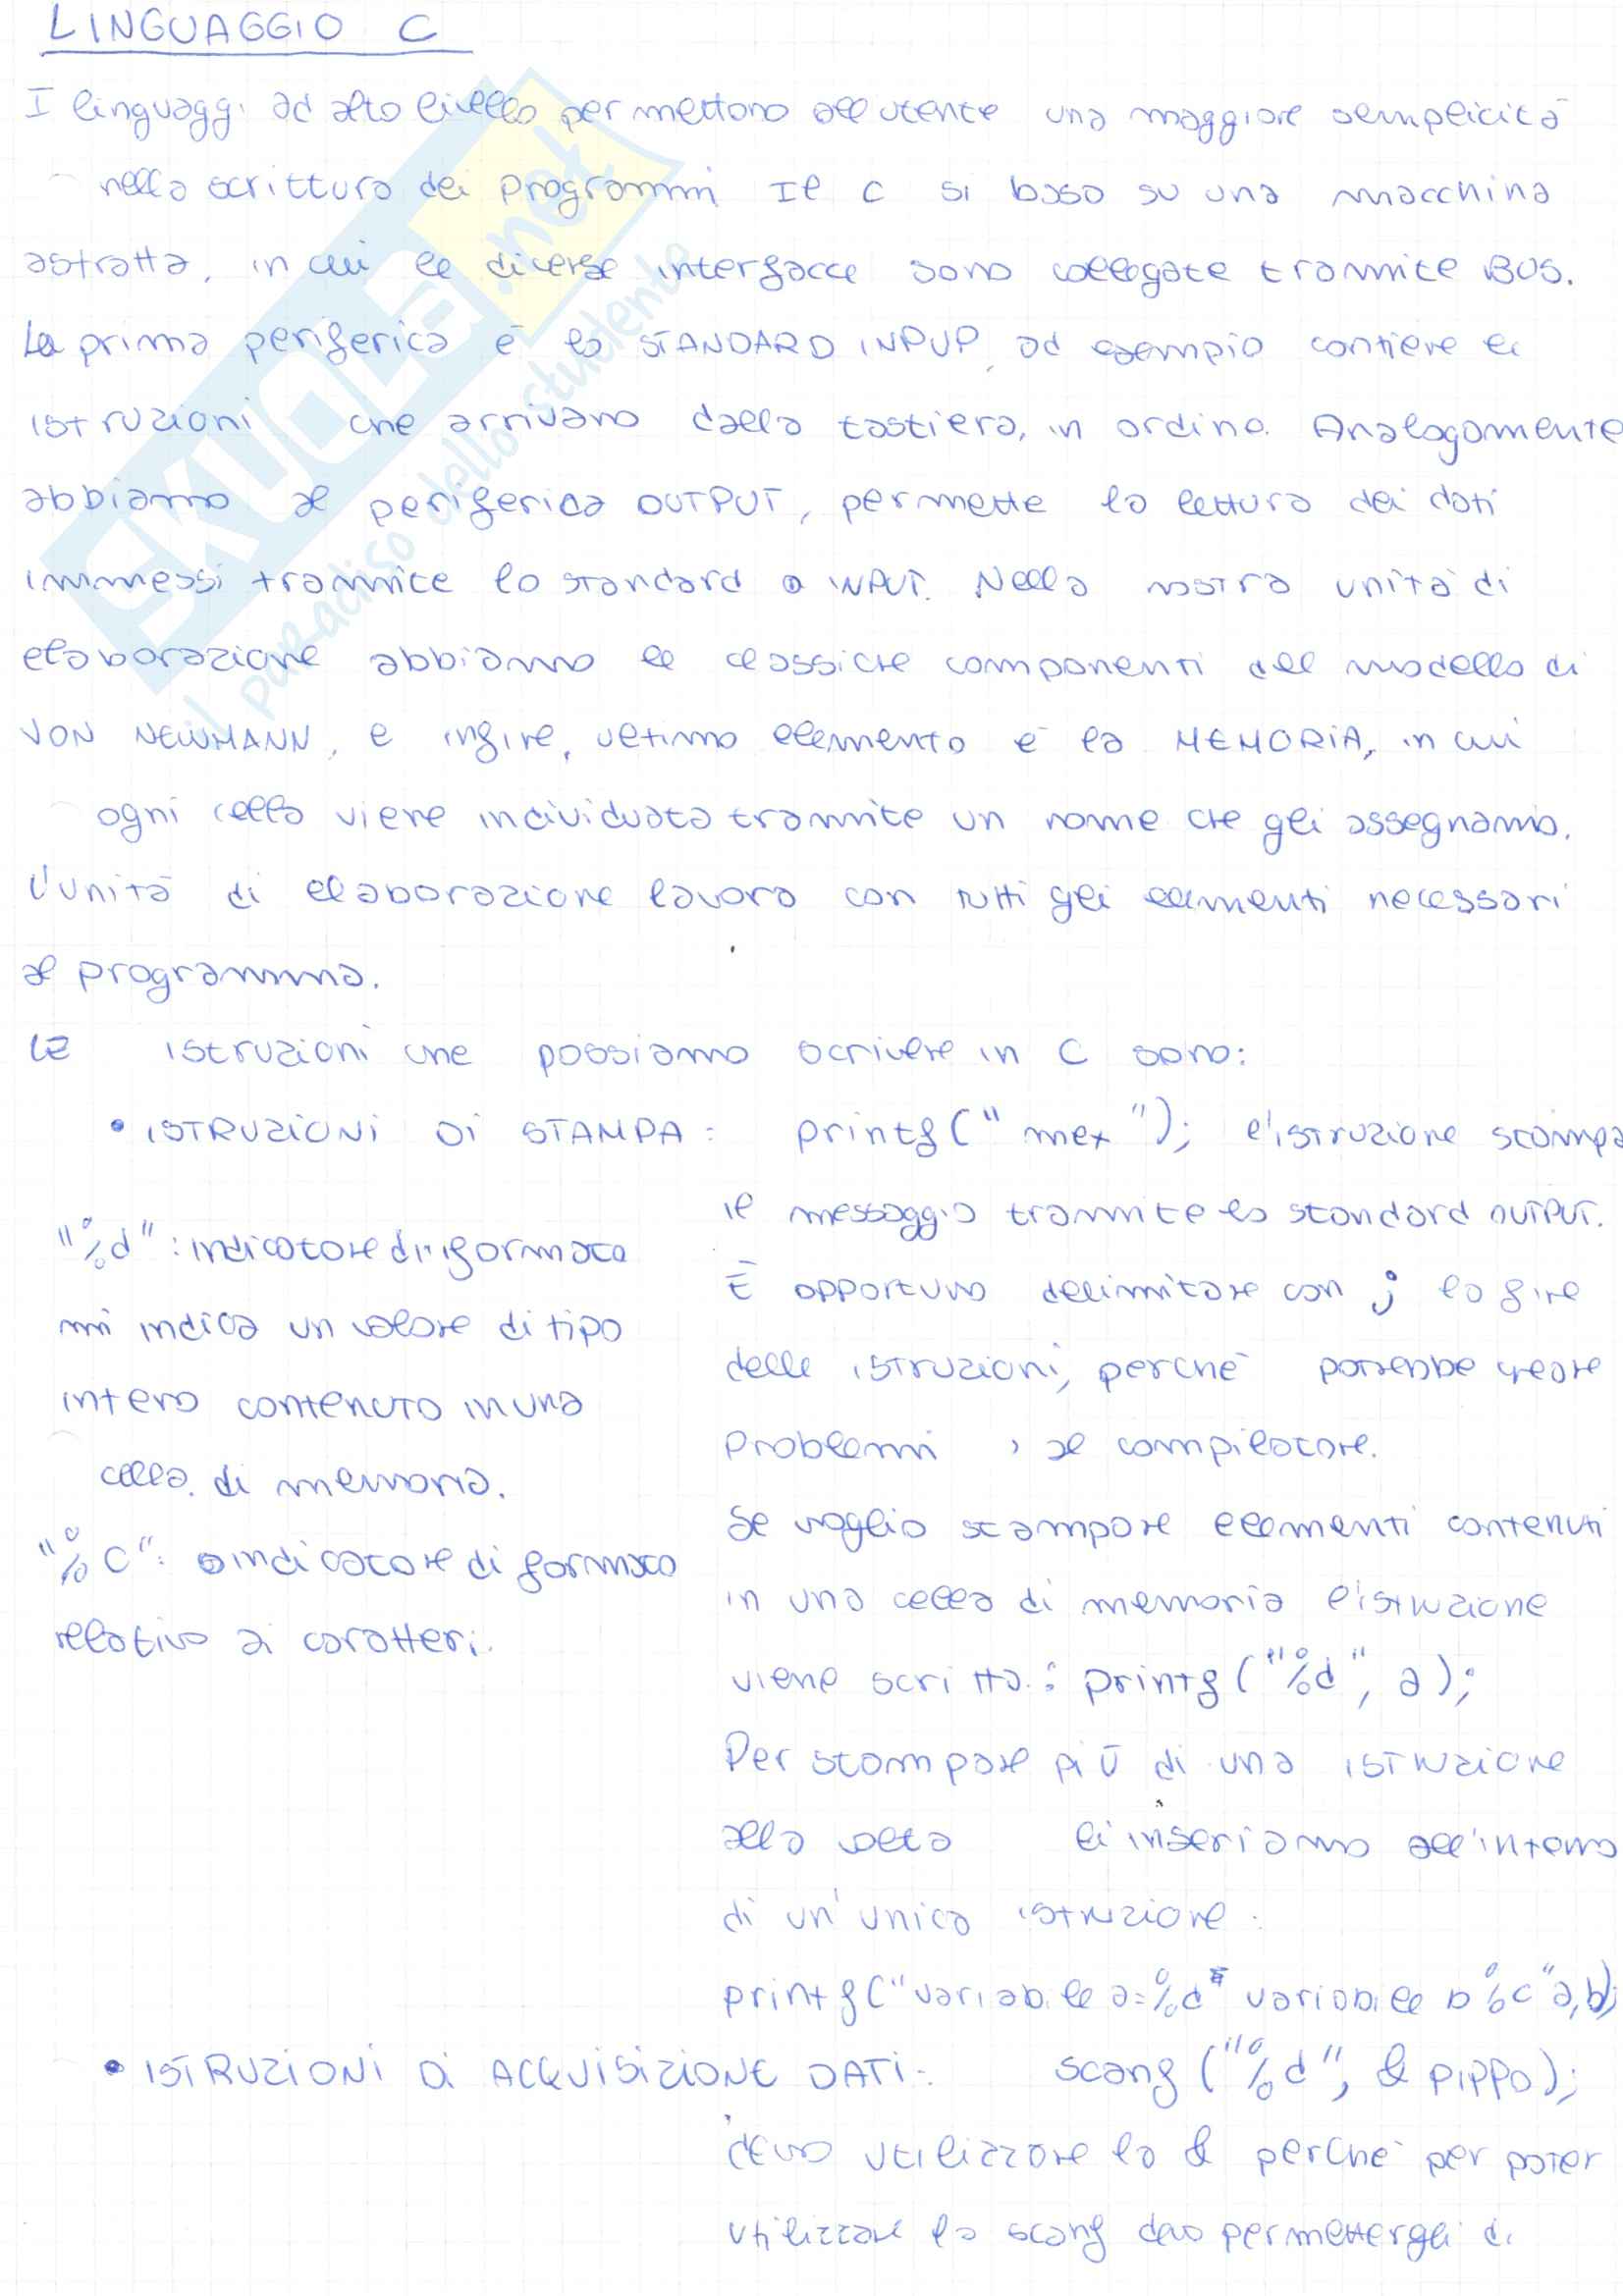 LINGUAGGIO C
I linguaggi ad alto livello permettono all utente una maggiore semplicità
nella scrittura dei programmi Il C si basa su una macchina
astratta, in cui le diverse interfacce sono collegate tramite BUS.
La prima periferica è lo STANDARD INPUP, ad esempio contiene le
istruzioni che arrivano dalla tastiera, in ordine. Analogamente
abbiamo al periferica OUTPUT, permette la lettura dei dati
immessi tramite lo standard INPUT. Nella nostra unità di
elaborazione abbiamo le classiche componenti del modello di
VON NEWMANN, e infine, ultimo elemento è la MEMORIA, in cui
ogni cella viene individuata tramite un nome che gli assegnamo.
L'unità di elaborazione lavora con tutti gli elementi necessari
al programma.
Le istruzioni che possiamo scrivere in C sono:
• ISTRUZIONI DI STAMPA: printf(" mex "); l'istruzione stampa
il messaggio tramite lo standard OUTPUT.
È opportuno delimitare con ; la fine
delle istruzioni, perchè potrebbe creare
problemi al compilatore.
Se voglio stampare elementi contenuti
in una cella di memoria l'istruzione
viene scritta: printf("%d", a);
Per stampare più di una istruzione
alla volta li inseriamo all'interno
di un'unica istruzione:
printf("variabile a=%d variabile b %c"a,b);
"%d": indicatore di formato
mi indica un valore di tipo
intero contenuto in una
cella di memoria.
"%c": indicatore di formato
relativo ai caratteri.
• ISTRUZIONI DI ACQUISIZIONE DATI: scanf("%d", & pippo);
devo utilizzare la & perchè per poter
utilizzare la scanf devo permettergli di
SKUOLa.net
il paradiso dello studente